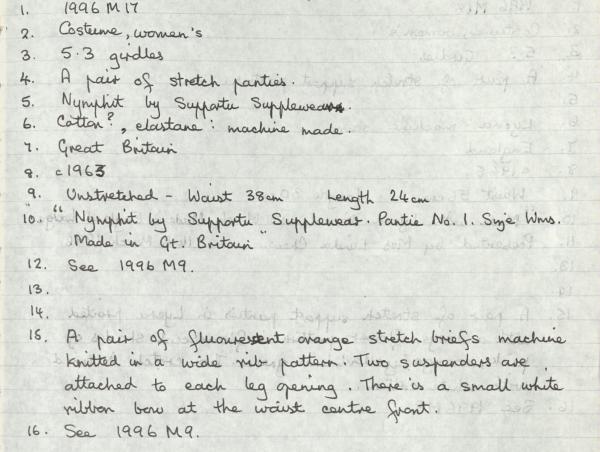 1. 1996 M 17
2. Costume, women's
3. 5.3 girdles
4. A pair of stretch panties.
5. Nymphit by Supportu Supplewear.
6. Cotton?, elastane: machine made.
7. Great Britain
8. c1963
9. Unstretched - Waist 38cm Length 24cm
10. "Nymphit by Supportu Supplewear. Pantie No. 1. Size Wms.
Made in Gt. Britain"
12. See 1996 M9.
13.
14.
15. A pair of fluorescent orange stretch briefs machine
knitted in a wide rib pattern. Two suspenders are
attached to each leg opening. There is a small white
ribbon bow at the waist centre front.
16. See 1996 M9.